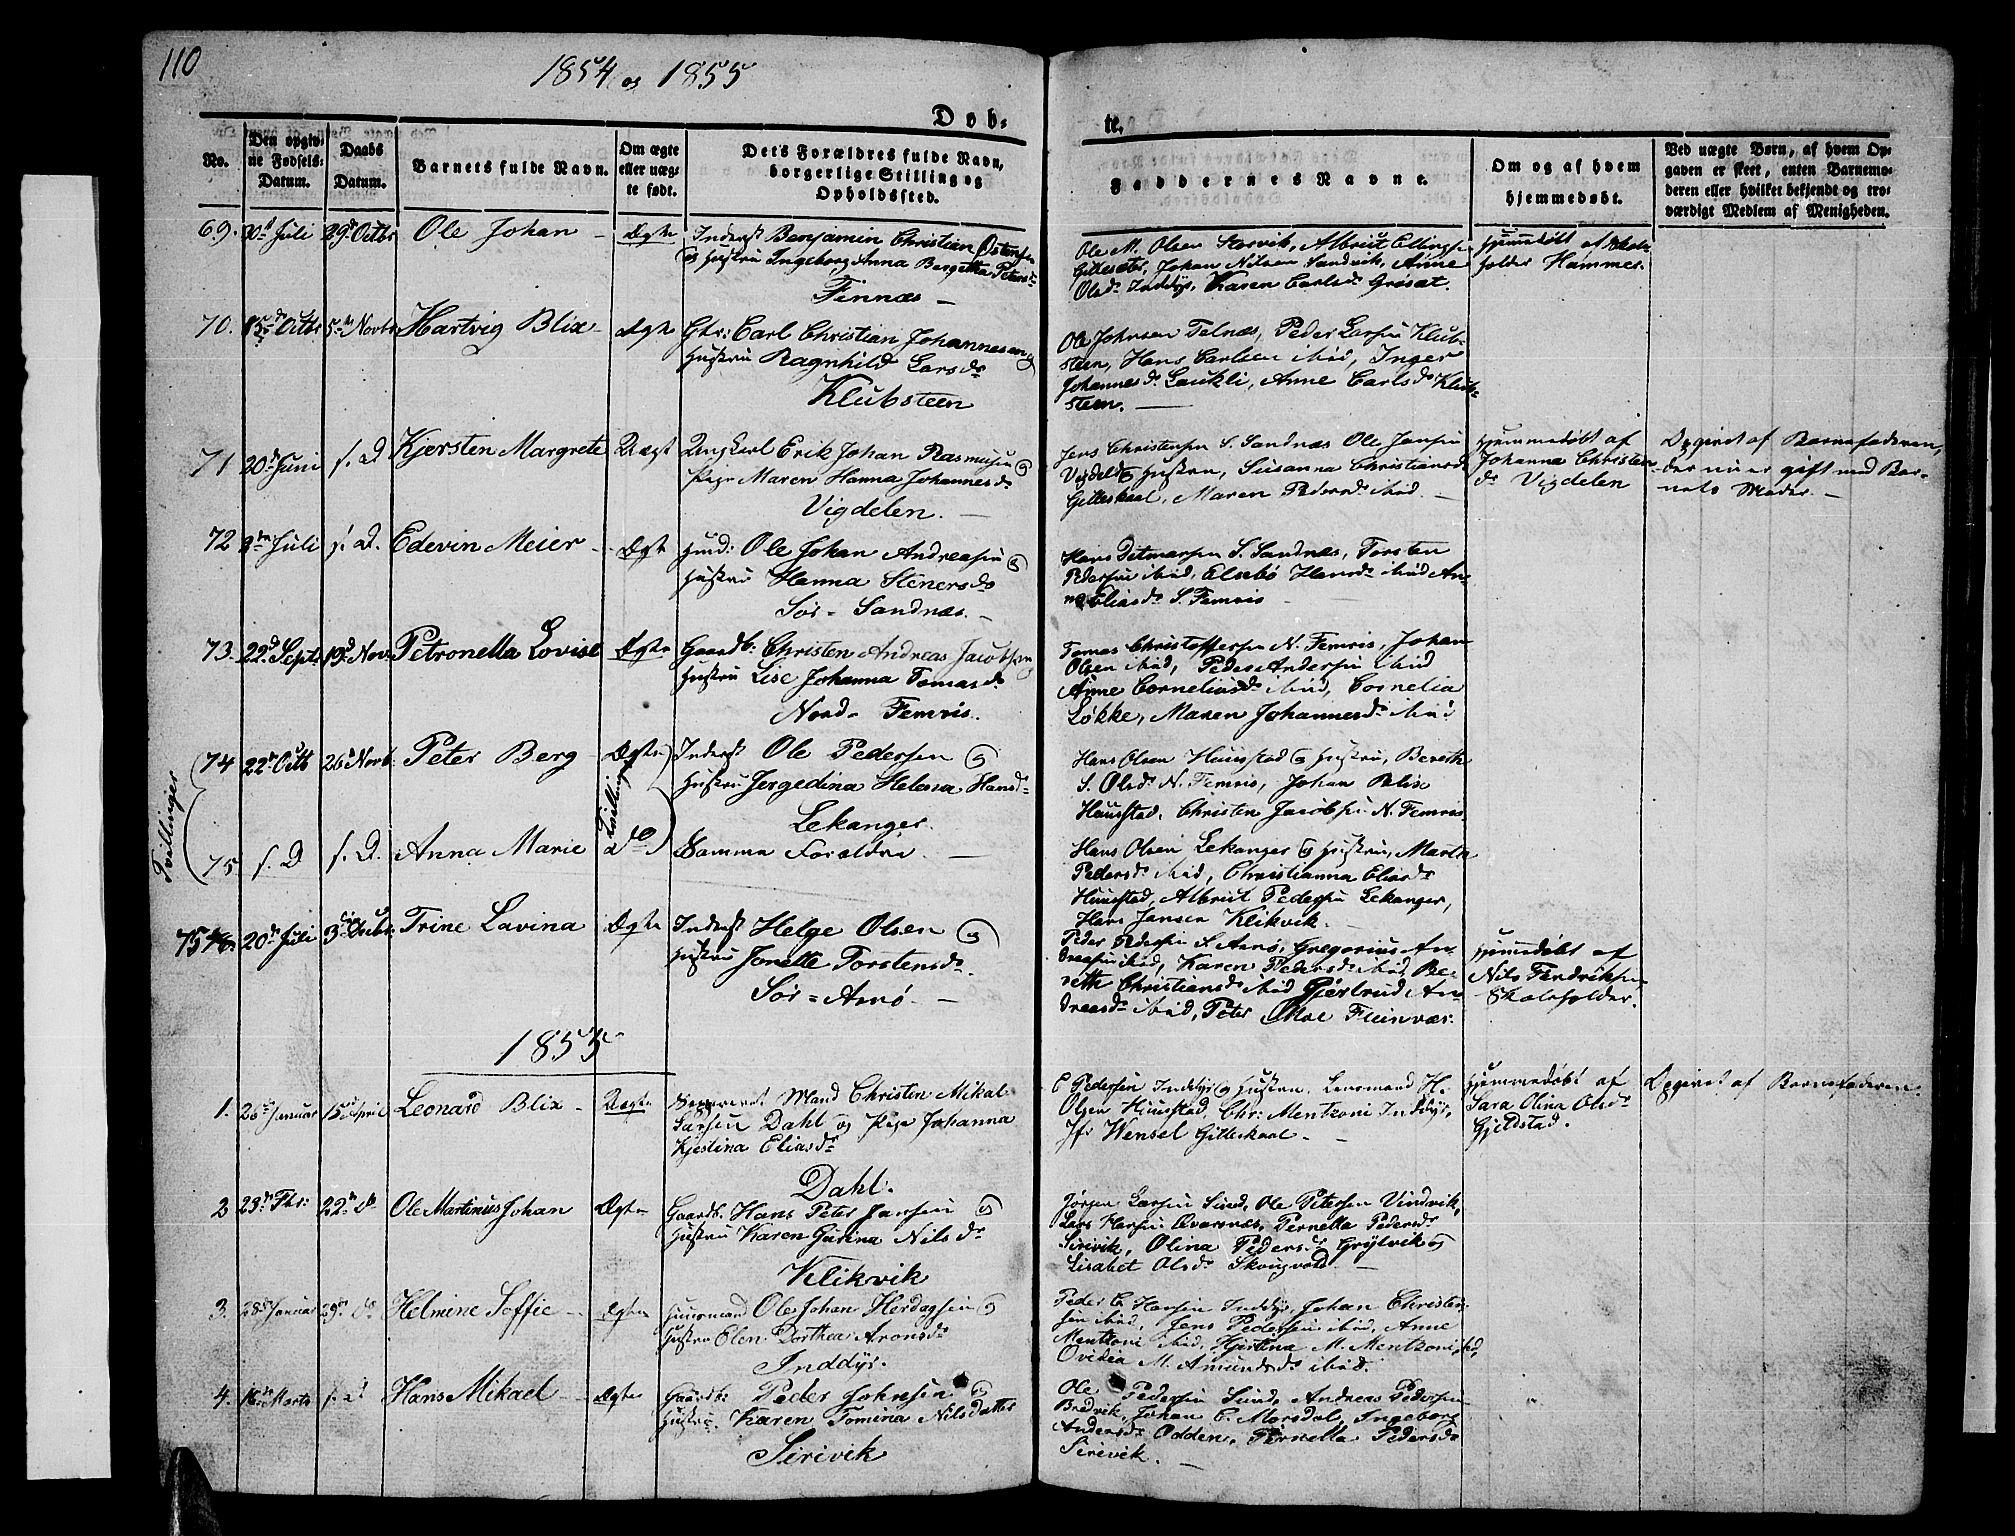 110
1854 og 1855
Døb-
te.
No.
Den opgiv-
ne Fødsels-
Datum.
Daabs
Datum.
Barnets fulde Navn.
Om ægte
eller uæg-
te født.
Dets Forældres fulde Navn,
borgerlige Stilling og
Opholdssted.
Faddernes Navne.
Om og af hvem
hjemmedøbt.
Ved uægte Børn, af hvem Op-
gaven er skeet, enten Barnemo-
deren eller hvilket bekjendt og tro-
værdigt Medlem af Menigheden.
69. 30d Juli 29d Octbr Ole Johan - Ægte
Inderst Benjamin Christian Østensen
og Hustru Ingeborg Anna Bergetha Petersdr
Finnæs -
Ole M. Olsen Storvik, Albrigt Ellingsen
Gilleskaal, Johan Nilsen Sandvik, Anne
Olsdr Inddyr, Karen Carlsdr Grosæt.
Hjemmedøbt af Skole-
holder Hammer.
70. 15de Octbr 5te Novbr Hartvig Blix - Ægte
Gbr: Carl Christian Johannesen og
Hustru Ragnhild Larsdr
Klubsteen
Ole Johnsen Telnæs, Peder Larsen Klub-
steen, Hans Carlsen ibid, Inger
Johannesdr Laukli, Anne Carlsdr Klub-
steen. -
71 20de Juni s. D Kjersten Margrete Uægt
Ungkarl Erik Johan Rasmusen og
Pige Maren Hanna Johannesdr
Vigdelen. -
Jens Christensen S. Sandnæs Ole Jansen
Vigdel og Hustru, Susanna Christiansdr
Gilleskaal, Maren Pedersdr ibid. -
Hjemmedøbt af
Johanna Christens-
dr Vigdelen
Opgivet af Barnefaderen,
der nu er gift med Bar-
nets Moder. -
72 3die Juli s. D. Edevin Meier - Ægte
Huusm: Ole Johan Andreasen og
Hustru Hanna Stenersdr
Sør-Sandnæs. -
Hans Ditmarsen S. Sandnæs, Torsten
Pedersen ibid, Elsebø Hansdr ibid An-
ne Eliasdr S. Femris -
73. 22d Septr 19d Nov. Petronella Lovise Ægte
Gaardb: Christen Andreas Jacobsen og
Hustru Lise Johanna Tomasdr
Nord-Femris.
Tomas Christoffersen N. Femris, Johan
Olsen ibid, Peder Andersen ibid
Anne Corneliusdr ibid, Cornelia
Løkke, Maren Johannesdr ibid
Tvillinger
74 22de Octb 26d Novb: Peter Berg - Ægte
Tvillinger
Inderst Ole Pedersen og
Hustru Jergedina Helena Hansdr
Lekanger.
Hans Olsen Huustad og Hustru, Bereth
S. Olsdr N. Femris, Johan Blix
Huustad, Christen Jacobsen N. Femris
75 s. D s. D. Anna Marie do
Samme Forældre. -
Hans Olsen Lekanger og Hustru, Marta
Pedersdr ibid, Christianna Eliasdr
Huustad, Albrigt Pedersen Lekanger,
Hans Jansen Klikvik. -
76. 20de Juli 3die Decbr: Trine Lavina Ægte
Inderst Helge Olsen og
Hustru Jonette Torstensdr
Sør-Arnø. -
Peder Pedersen S. Arnø, Gregorius An-
dreasen ibid, Karen Pedersdr ibid, Be-
reth Christiansdr ibid Gjertrud An-
dreasdr ibid, Peter Moe Fleinvær.
Hjemmedøbt af
Nils Fredriksen
Skoleholder.
1855
1. 26de Januar 15d April Leonard Blix - Uægte
Mand Christen Mikal
Larsen Dahl og Pige Johanna
Kjestina Eliasdr
Dahl.
C Pedersen Inddyr og Hustru. Lensmand H.
Olsen Huustad, Chr: Mentzoni Inddyr,
Jfr Wensel Gilleskaal. -
Hjemmedøbt af
Sara Olina Olsdr
Gjeldstad.
Opgivet af Barnefaderen
2 23de Fbr: 22de do Ole Martinius Johan Ægte
Gaardb. Hans Peter Jansen og
Hustru Karen Gurina Nilsdr
Klikvik
Jørgen Larsen Sund, Ole Petersen Vindvik,
Lars Hansen Qvarsnæs, Pernella Pedersdr
Sirivik, Olina Pedersdr Grylvik og
Lisabet Olsdr Skougvold. -
3. 28de Januar 29de do Helmine Soffie - Ægte
Huusmand Ole Johan Herdagsen og
Hustru Elen Dorthea Aronsdr
Inddyr.
Peder C. Hansen Inddyr, Johan Christen-
sen ibid, Jens Pedersen ibid, Anne
Mentzoni ibid, Hjertina M. Mentzoni ibid,
Ovidia M. Amundsdr ibid.
4. 16de Marts s. D Hans Mikael - Ægte
Gaardb: Peder Johnsen og
Hustru Karen Tomina Nilsdatter
Sirivik
Ole Pedersen Sund, Andreas Pedersen
Bredvik, Johan C. Morsdal, Ingeborg
Andersdr Odden, Pernella Pedersdr
Sirivik. -